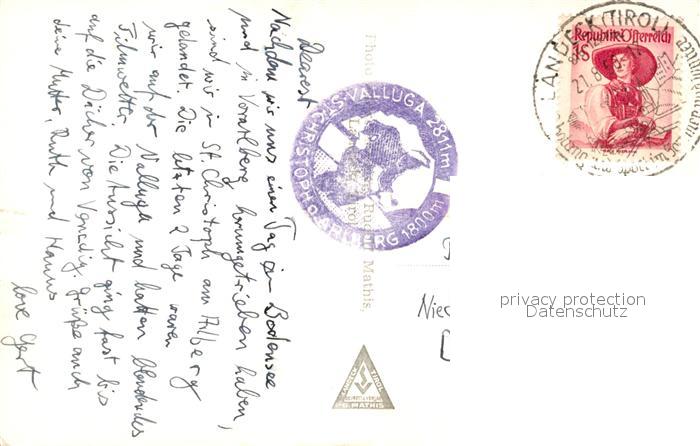 Dearest
Nachdem wir uns einen Tag am Bodensee
und in Vorarlberg herumgetrieben haben,
sind wir in St. Christoph am Arlberg
gelandet. Die letzten 2 Tage waren
wir auf der Valluga und hatten blendendes
Filmwetter. Die Aussicht ging fast bis
auf die Dächer von Venedig. Grüße auch
deine Mutter, Ruth und Hanns
love Gert
VALLUGA 2811m
ARLBERG 1800m
Photo
Mathis,
Republik Österreich
1S
LANDECK (TIROL)
21.8
Nie
privacy protection
Datenschutz
TIROL
MATHIS